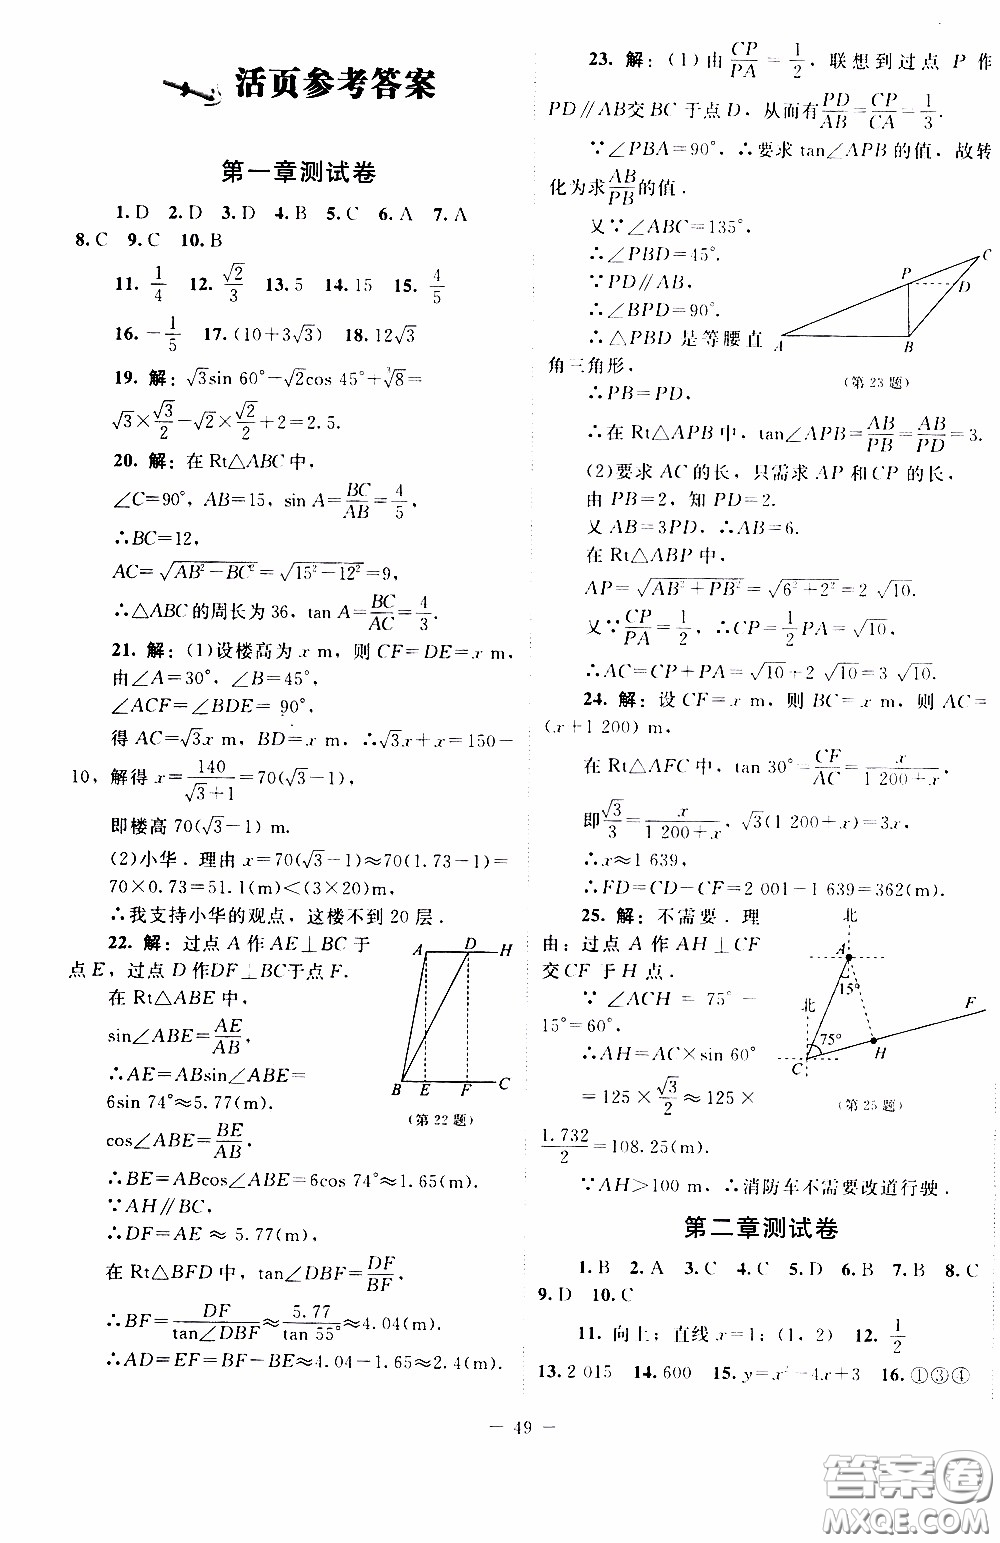 活页参考答案
第一章测试卷
1. D 2. D 3. D 4. B 5. C 6. A 7. A
8. C 9. C 10. B
11. 1/4 12. √2/3 13. 5 14. 15 15. 4/5
16. -1/5 17. (10+3√3) 18. 12√3
19. 解：√3sin 60°-√2cos 45°+∛8=
√3×√3/2-√2×√2/2+2=2.5.
20. 解：在Rt△ABC中，
∠C=90°, AB=15, sin A=BC/AB=4/5,
∴BC=12,
AC=√(AB²-BC²)=√(15²-12²)=9,
∴△ABC的周长为36, tan A=BC/AC=4/3.
21. 解：(1)设楼高为x m, 则CF=DE=x m,
由∠A=30°, ∠B=45°,
∠ACF=∠BDE=90°,
得AC=√3x m, BD=x m, ∴√3x+x=150-
10, 解得x=140/(√3+1)=70(√3-1),
即楼高70(√3-1) m.
(2)小华. 理由x=70(√3-1)≈70(1.73-1)=
70×0.73=51.1(m)<(3×20)m.
∴我支持小华的观点，这楼不到20层.
22. 解：过点A作AE⊥BC于
点E, 过点D作DF⊥BC于点F.
在Rt△ABE中，
sin∠ABE=AE/AB,
∴AE=ABsin∠ABE=
6sin 74°≈5.77(m).
cos∠ABE=BE/AB,
∴BE=ABcos∠ABE=6cos 74°≈1.65(m).
∵AH∥BC,
∴DF=AE≈5.77(m).
在Rt△BFD中, tan∠DBF=DF/BF,
∴BF=DF/tan∠DBF≈5.77/tan 55°≈4.04(m).
∴AD=EF=BF-BE≈4.04-1.65≈2.4(m).
A D H
B E F C
(第22题)
23. 解：(1)由CP/PA=1/2, 联想到过点P作
PD∥AB交BC于点D, 从而有PD/AB=CP/CA=1/3.
∵∠PBA=90°, ∴要求tan∠APB的值, 故转
化为求AB/PB的值.
又∵∠ABC=135°,
∴∠PBD=45°.
∵PD∥AB,
∴∠BPD=90°.
∴△PBD是等腰直
角三角形,
∴PB=PD,
∴在Rt△APB中, tan∠APB=AB/PB=AB/PD=3.
C
P
D
A
B
(第23题)
(2)要求AC的长, 只需求AP和CP的长,
由PB=2, 知PD=2.
又AB=3PD, ∴AB=6.
在Rt△ABP中,
AP=√(AB²+PB²)=√(6²+2²)=2√10.
又∵CP/PA=1/2, ∴CP=1/2PA=√10,
∴AC=CP+PA=√10+2√10=3√10.
24. 解：设CF=x m, 则BC=x m, 则AC=
(x+1 200) m,
在Rt△AFC中, tan 30°=CF/AC=x/(1 200+x),
即√3/3=x/(1 200+x), √3(1 200+x)=3x,
∴x≈1 639,
∴FD=CD-CF=2 001-1 639=362(m).
25. 解：不需要. 理
由：过点A作AH⊥CF
交CF于H点.
∵∠ACH=75°-
15°=60°,
∴AH=AC×sin 60°
=125×√3/2≈125×
1.732/2=108.25(m).
∵AH>100 m, ∴消防车不需要改道行驶.
北
A
15°
北
F
75°
H
C
(第25题)
第二章测试卷
1. B 2. A 3. C 4. C 5. D 6. B 7. B 8. C
9. D 10. C
11. 向上；直线x=1；(1, 2) 12. 1/2
13. 2 015 14. 600 15. y=x²-4x+3 16. ①③④
— 49 —
答案卷
MXQE.COM